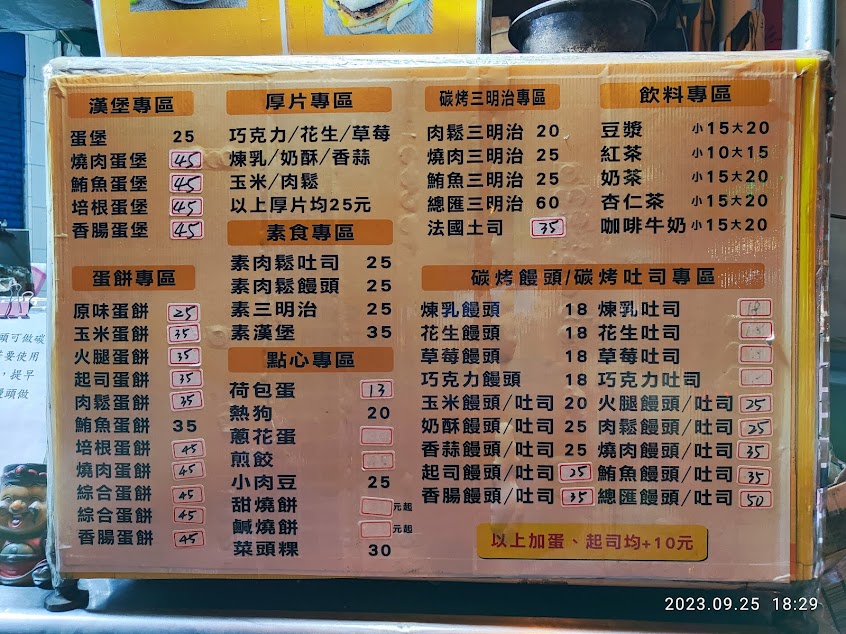 漢堡專區
蛋堡 25
燒肉蛋堡 45
鮪魚蛋堡 45
培根蛋堡 45
香腸蛋堡 45
蛋餅專區
原味蛋餅 25
玉米蛋餅 35
火腿蛋餅 35
起司蛋餅 35
肉鬆蛋餅 35
鮪魚蛋餅 35
培根蛋餅 45
燒肉蛋餅 45
綜合蛋餅 45
綜合蛋餅 45
香腸蛋餅 45
厚片專區
巧克力/花生/草莓
煉乳/奶酥/香蒜
玉米/肉鬆
以上厚片均25元
素食專區
素肉鬆吐司 25
素肉鬆饅頭 25
素三明治 25
素漢堡 35
點心專區
荷包蛋 13
熱狗 20
蔥花蛋
煎餃
小肉豆 25
甜燒餅 元起
鹹燒餅 元起
菜頭粿 30
碳烤三明治專區
肉鬆三明治 20
燒肉三明治 25
鮪魚三明治 25
總匯三明治 60
法國土司 35
飲料專區
豆漿 小15大20
紅茶 小10大15
奶茶 小15大20
杏仁茶 小15大20
咖啡牛奶 小15大20
碳烤饅頭/碳烤吐司專區
煉乳饅頭 18 煉乳吐司 18
花生饅頭 18 花生吐司
草莓饅頭 18 草莓吐司
巧克力饅頭 18 巧克力吐司
玉米饅頭/吐司 20 火腿饅頭/吐司 25
奶酥饅頭/吐司 25 肉鬆饅頭/吐司 25
香蒜饅頭/吐司 25 燒肉饅頭/吐司 35
起司饅頭/吐司 25 鮪魚饅頭/吐司 35
香腸饅頭/吐司 35 總匯饅頭/吐司 50
以上加蛋、起司均+10元
頭可做碳
要使用
，提早
饅頭做
2023.09.25 18:29